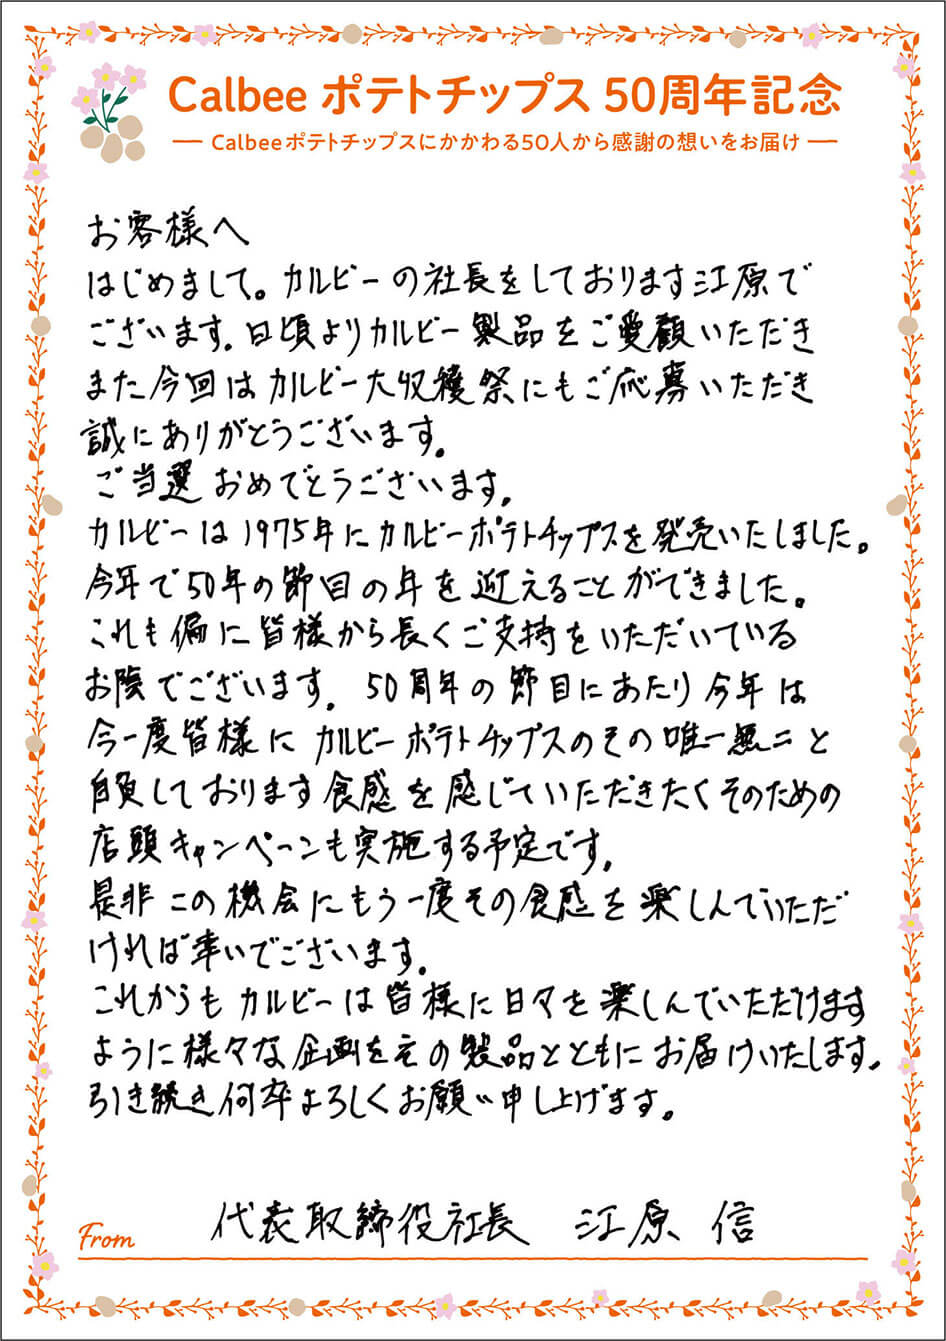 Calbee ポテトチップス 50周年記念
Calbeeポテトチップスにかかわる50人から感謝の想いをお届け
お客様へ
はじめまして。カルビーの社長をしております江原で
ございます。日頃よりカルビー製品をご愛顧いただき
また今回はカルビー大収穫祭にもご応募いただき
誠にありがとうございます。
ご当選おめでとうございます。
カルビーは1975年にカルビーポテトチップスを発売いたしました。
今年で50年の節目の年を迎えることができました。
これも偏に皆様から長くご支持をいただいている
お陰でございます。50周年の節目にあたり今年は
今一度皆様にカルビーポテトチップスのその唯一無二と
自負しております食感を感じていただきたくそのための
店頭キャンペーンも実施する予定です。
是非この機会にもう一度その食感を楽しんでいただ
ければ幸いでございます。
これからもカルビーは皆様に日々を楽しんでいただけます
ように様々な企画をその製品とともにお届けいたします。
引き続き何卒よろしくお願い申し上げます。
From 代表取締役社長 江原 信